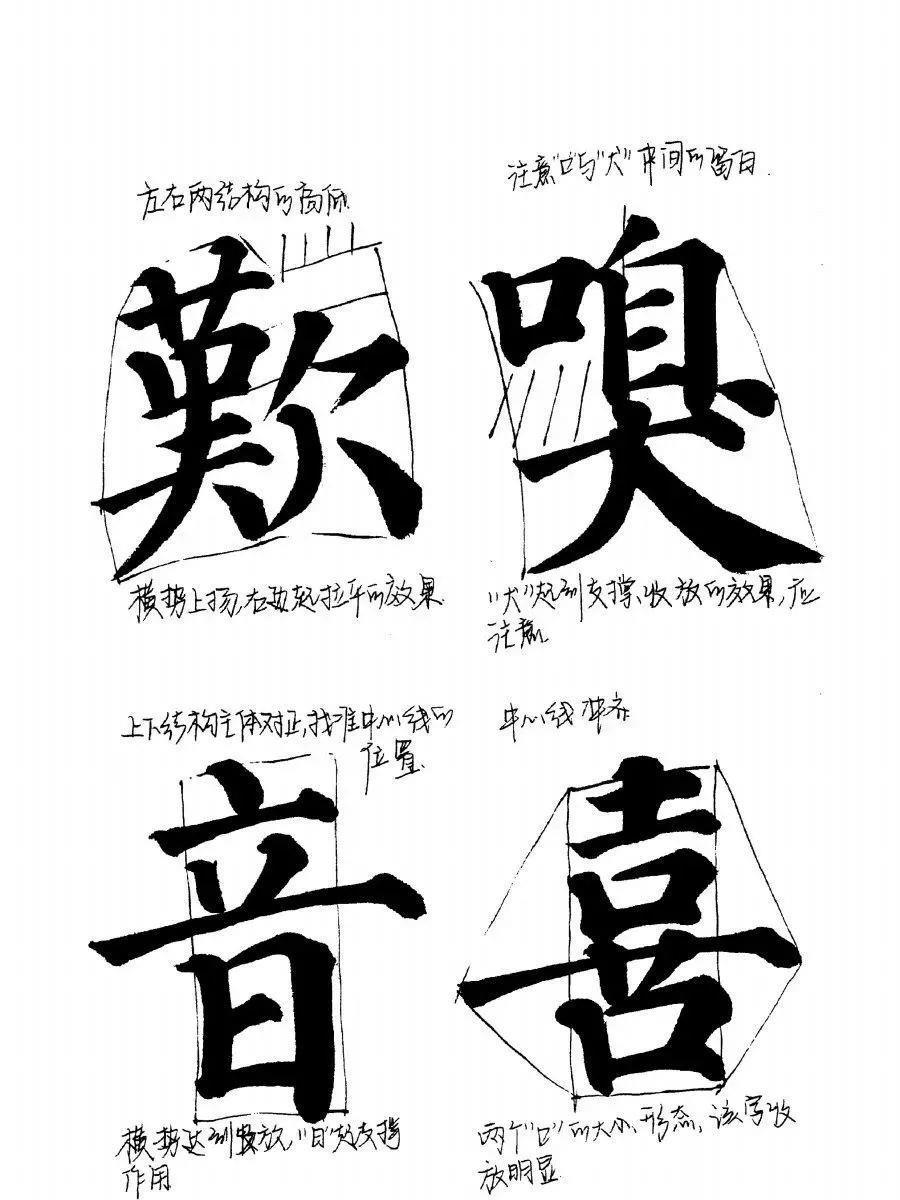 左右两结构的高低.
注意"口"与"犬"中间的留白.
歎
嗅
横势上扬,右边起拉平的效果.
"犬"起到支撑、收放的效果,应
注意.
上下结构主体对正,找准中心线的
位置.
中心线对齐
音
喜
横势达到收放,"日"起支撑
作用
两个"口"的大小、形态,该字收
放明显.